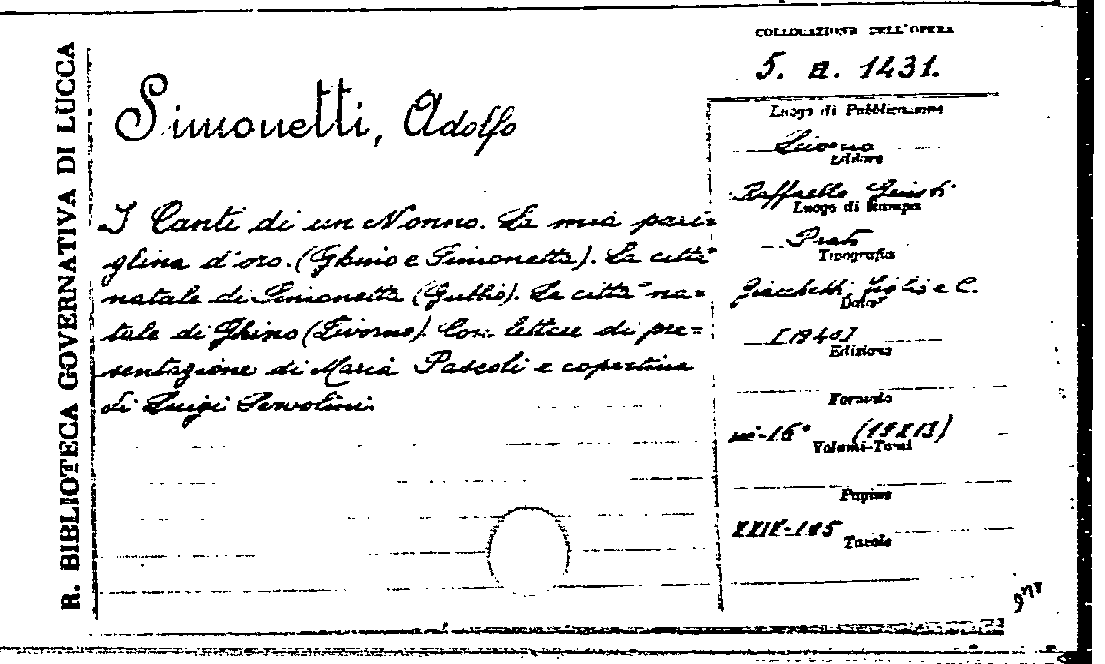 R. BIBLIOTECA GOVERNATIVA DI LUCCA
COLLOCAZIONE DELL'OPERA
5. H. 1431.
Simonetti, Adolfo
Luogo di Pubblicazione
Livorno
Editore
Raffaello Giusti
Luogo di Stampa
Prato
Tipografia
Giachetti Figli e C.
Data
[1940]
Edizione
Formato
in-16° (19X13)
Volumi-Tomi
Pagine
XXIX-185
Tavole
I Canti di un Nonno. La mia pari=
glina d'oro. (Ghino e Simonetta). La città
natale di Simonetta (Gubbio). La città na=
tale di Ghino (Livorno). Con lettere di pre=
sentazione di Maria Pascoli e copertina
di Luigi Servolini.